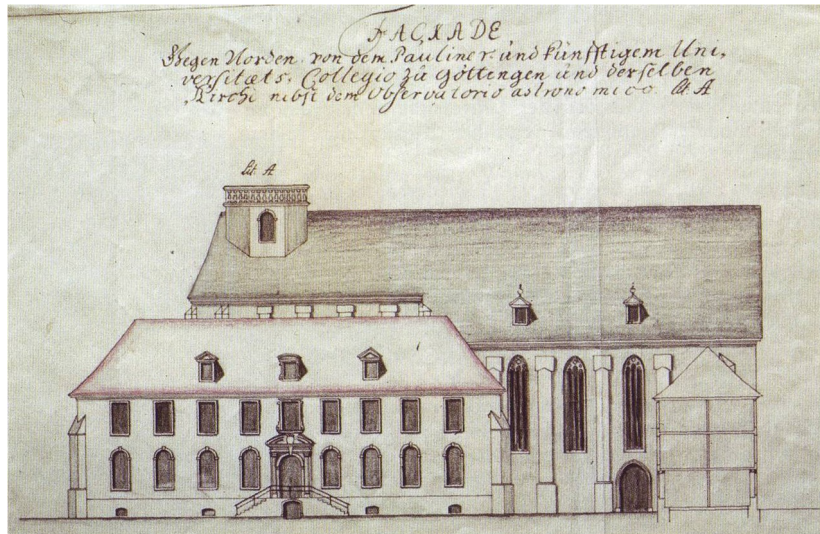 FACXADE
Gegen Norden von dem Pauliner und künfftigem Uni,
versitæts, Collegio zu Göttingen und derselben
Kirche nebst dem Observatorio astronomico lit. A
Lit. A